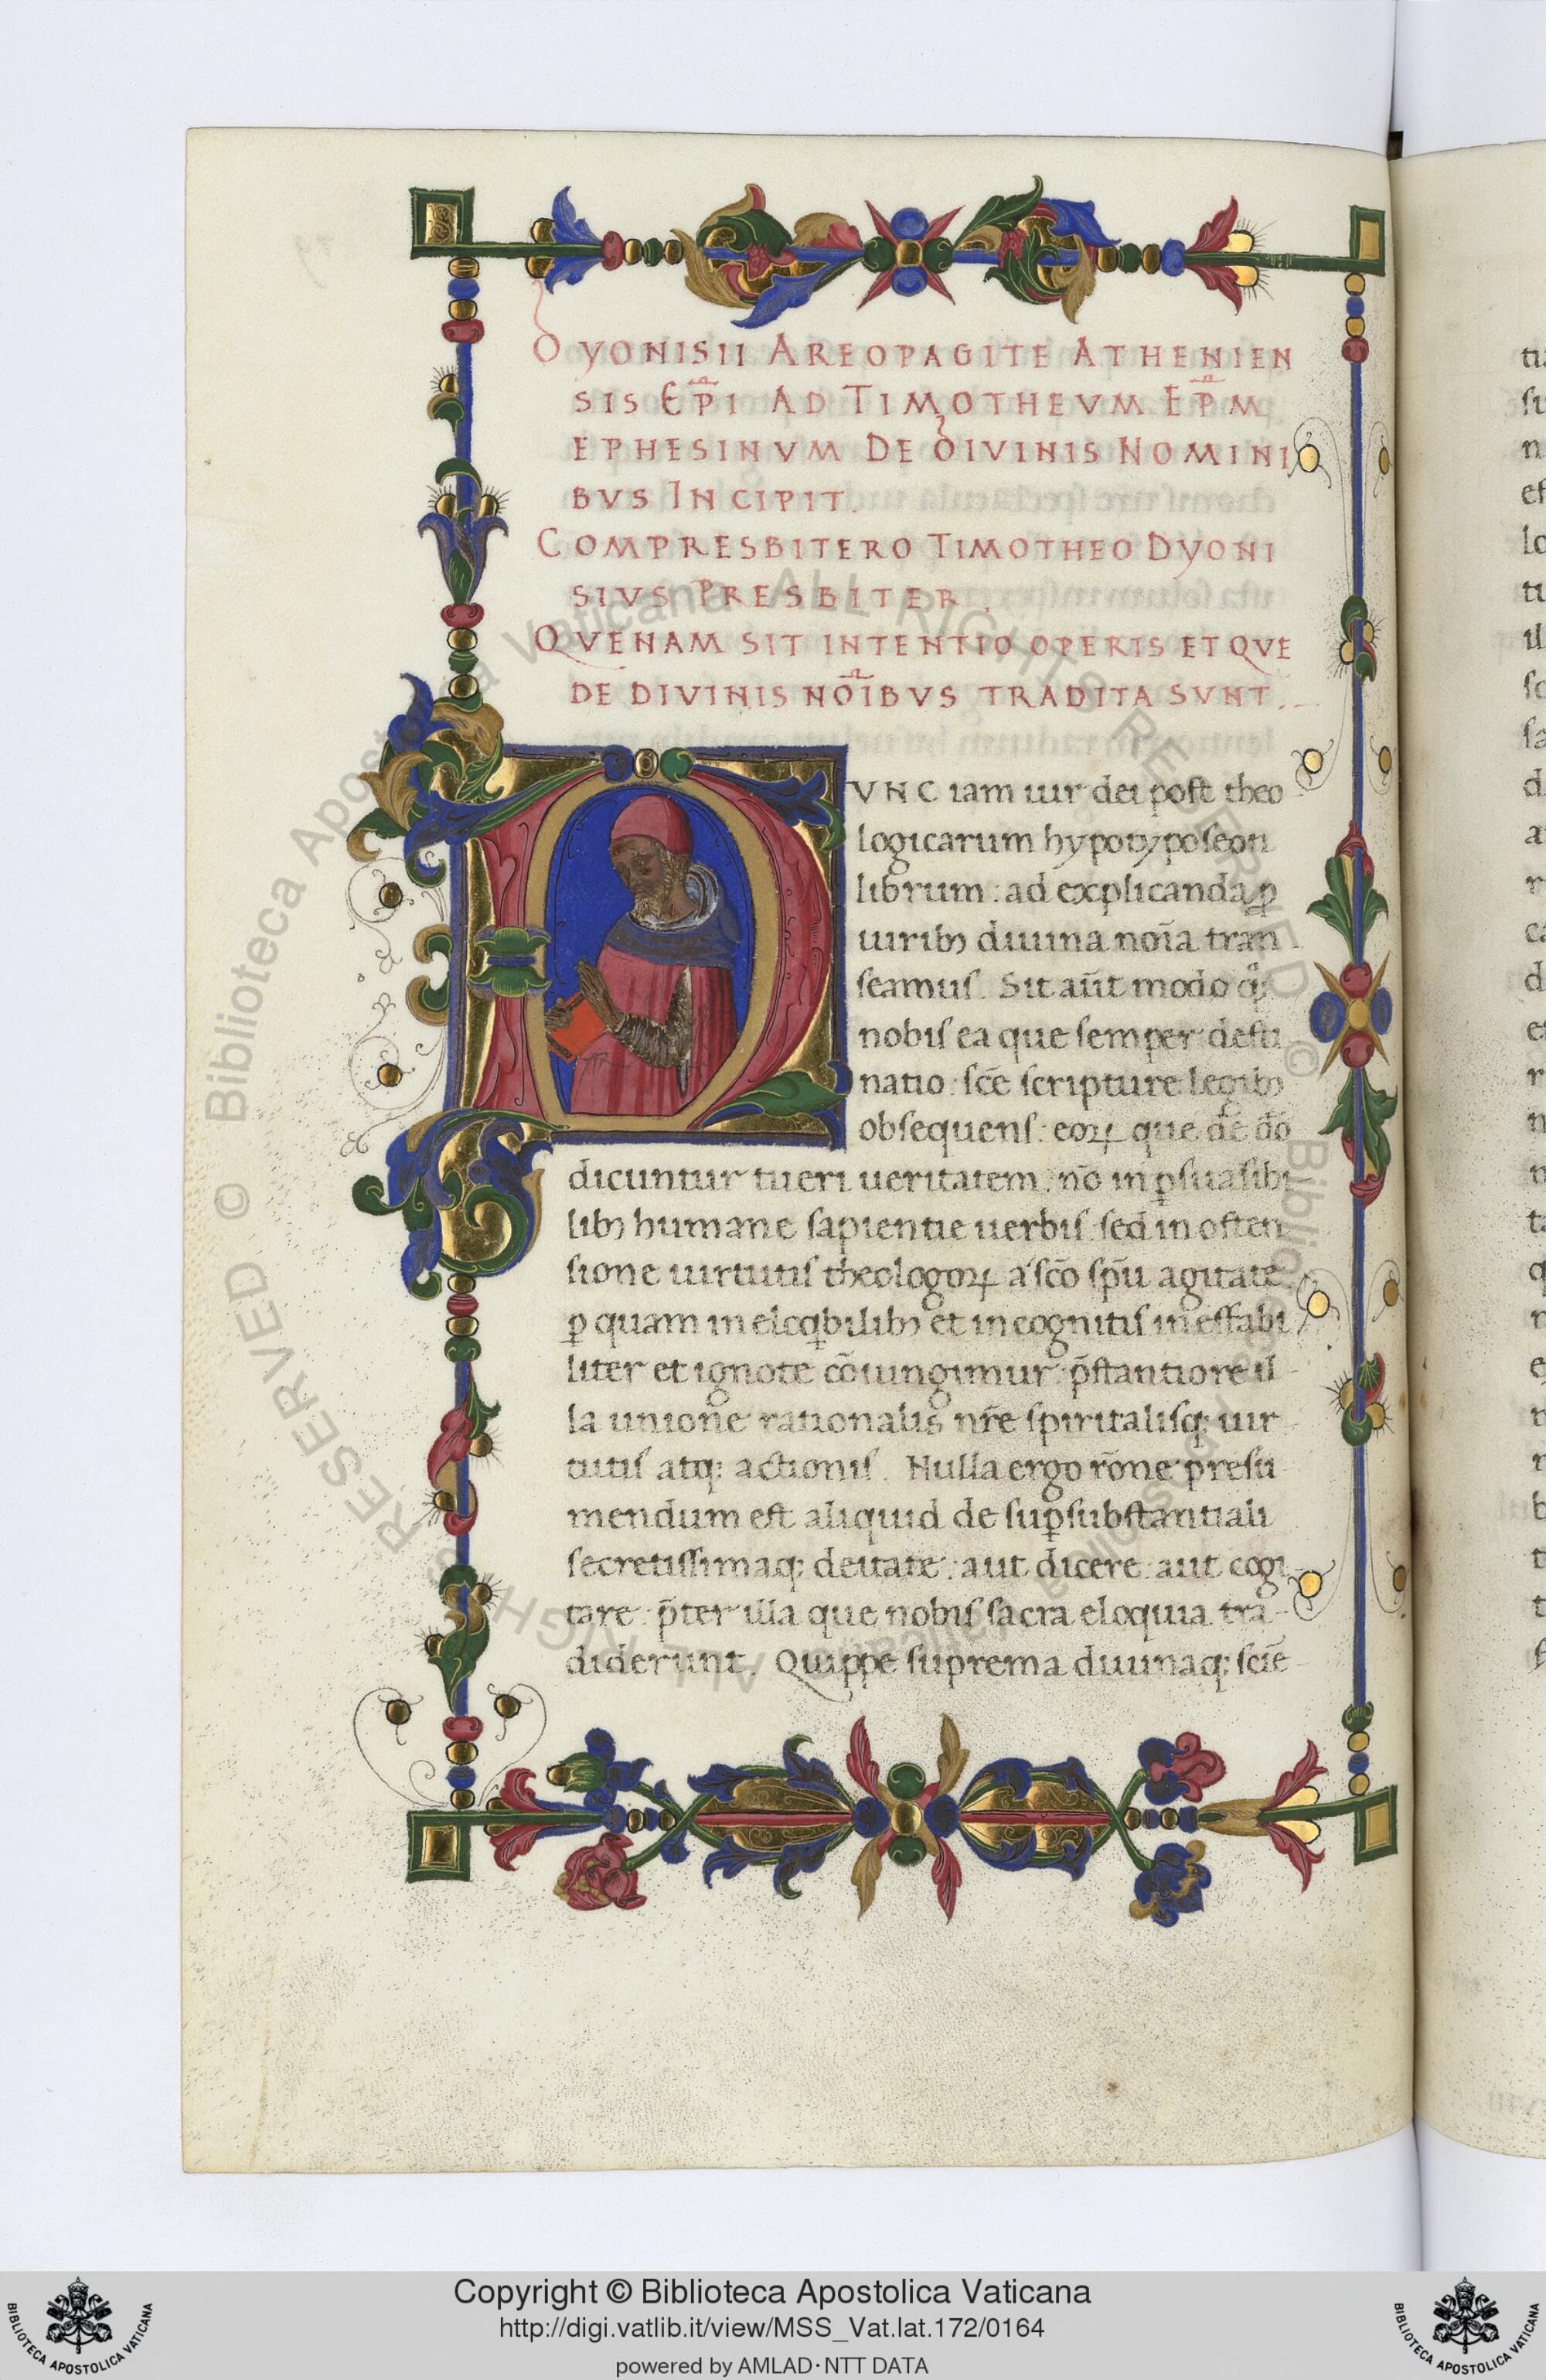 DYONISII AREOPAGITE ATHENIEN
SIS EP̃I AD TIMOTHEVM EP̃M
EPHESINVM DE DIVINIS NOMINI
BVS INCIPIT.
COMPRESBITERO TIMOTHEO DYONI
SIVS PRESBITER.
QVENAM SIT INTENTIO OPERIS ET QVE
DE DIVINIS NOĪBVS TRADITA SVNT.
NVNC iam uir dei post theo
logicarum hypotyposeon
librum: ad explicanda ꝓ
uiribꝫ diuina noīa tran
seamus. Sit aūt modo qͦꝫ
nobis ea que semper desti
natio: scē scripture legibꝫ
obsequens: eoꝝ que de dō
dicuntur tueri ueritatem, nō in ꝑsuasibi
libꝫ humane sapientie uerbis: sed in osten
sione uirtutis theologoꝝ a scō spū agitate:
ꝑ quam in eloqbilibꝫ et incognitis ineffabi
liter et ignote cōiungimur: p̄stantiore il
la unione rationalis nr̄e spiritalisqꝫ uir
tutis atqꝫ actionis. Nulla ergo rōne presu
mendum est aliquid de suꝑsubstantiali
secretissimaqꝫ deitate: aut dicere: aut cogi
tare: p̄ter illa que nobis sacra eloquia tra
diderunt. Quippe suprema diuinaqꝫ sciē
Copyright © Biblioteca Apostolica Vaticana
http://digi.vatlib.it/view/MSS_Vat.lat.172/0164
powered by AMLAD·NTT DATA
BIBLIOTECA APOSTOLICA VATICANA
BIBLIOTECA APOSTOLICA VATICANA
© Biblioteca Apostolica Vaticana ALL RIGHTS RESERVED
© Biblioteca Apostolica Vaticana ALL RIGHTS RESERVED